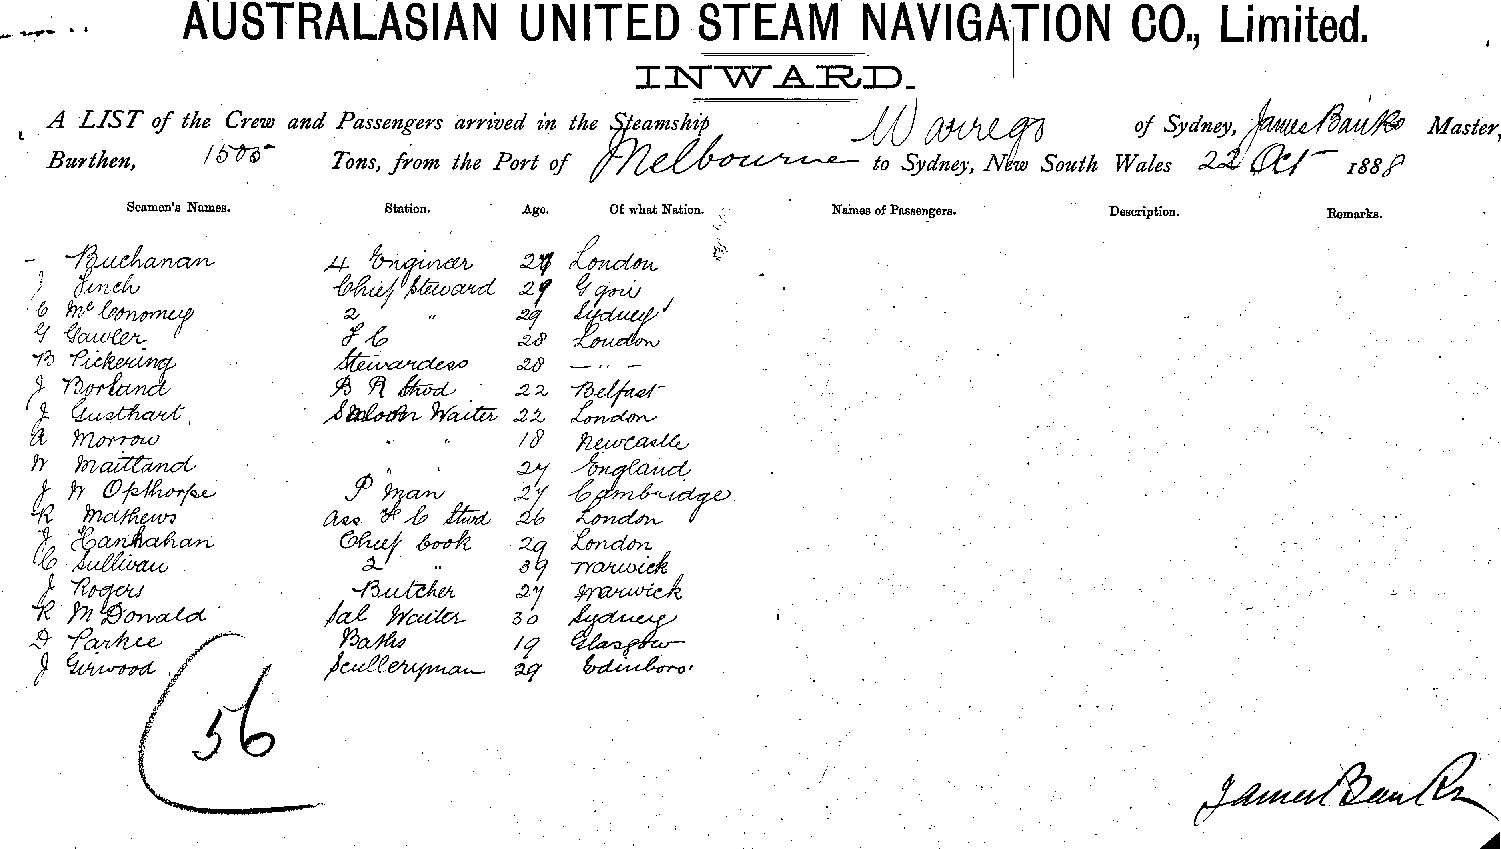 AUSTRALASIAN UNITED STEAM NAVIGATION CO., Limited.
INWARD.
A LIST of the Crew and Passengers arrived in the Steamship Warrego of Sydney, James Banks Master,
Burthen, 1505 Tons, from the Port of Melbourne to Sydney, New South Wales 22 Oct 1888
Seamen's Names. Station. Age. Of what Nation. Names of Passengers. Description. Remarks.
- Buchanan 4 Engineer 27 London
J Finch Chief Steward 29
C McConomey 2 " 29 Sydney
G Gawler F C 28 London
B Pickering Stewardess 28 - " -
J Borland B R Stwd 22 Belfast
J Gusthart Saloon Waiter 22 London
A Morrow " " 18 Newcastle
W Maitland " " 27 England
J W Opthorpe P man 27 Cambridge
R Mathews Ass F C Stwd 26 London
J Hanrahan Chief Cook 29 London
C Sullivan 2 " 39 Warwick
J Rogers Butcher 27 Warwick
R McDonald Sal Waiter 30 Sydney
D Parkee Baths 19 Glasgow
J Girwood Sculleryman 29 Edinboro'
56
James Banks